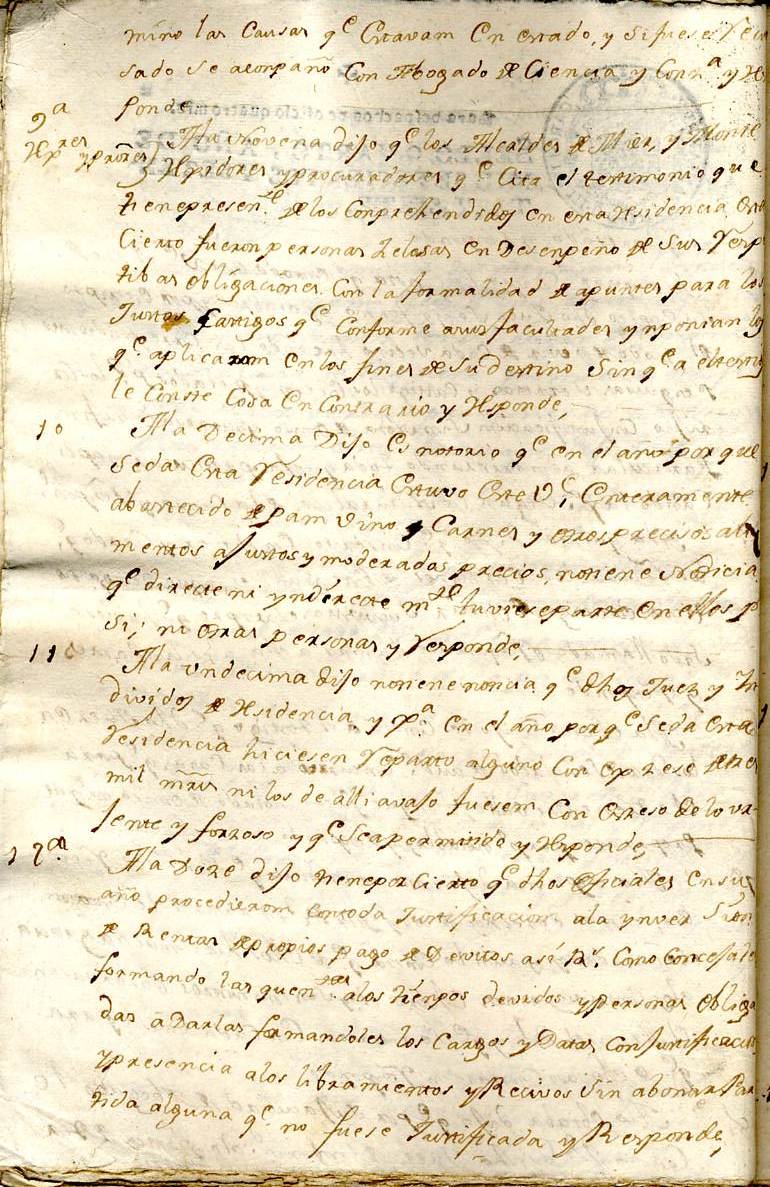 mino las Causas q.e Estavam En estado, y si fuese Recu
sado se aconpaño Con Abogado de Ciencia y Con.a y Res
ponde
9.a
A la Novena dijo q.e los Alcaldes de Mier, y Monte
Rexidores y procuradores q.e Cita el testimonio que
tiene presen.te de los Conprehendidos en esta Residencia Es
Cierto fueron personas Zelosas en Desenpeño de Sus Resp
tibas obligaciones Con la formalidad de apuntes para los
Justos Castigos q.e Conforme a sus facultades ynponian los
q.e aplicarom en los fines de su destino Sin q.e a el testigo
le Conste Cosa En Contrario y Responde,
10
A la Decima Dijo Es notorio q.e en el año por que
Seda Esta Residencia Estuvo Este V.o Enteramente
abastecido de pam vino y Carnes y otros precisos ali
mentos a justos y moderados precios, no tiene Noticia
q.e directe ni yndirecte m.te tuviese parte En ellos p
Si; ni otras personas y Responde,
11
A la Undecima dijo no tiene noticia q.e dhos Juez y In
dividos de Residencia y en el año por q.e Seda Esta
Residencia hiciesen Reparto alguno Con Exsese de tres
mil mrs ni los de alli avajo fuesem Con Exseso de lo ur-
jente y forzoso y q.e Sea permitido y Responde,
12a
A la Doze dijo tiene por Cierto q.e dhos Oficiales en su
año procedierom con toda Justificacion a la ynver Sion
de Rentas de propios pago de Devitos así R.s Como Concejales
formando las quen.tas a los tienpos devidos y personas Obliga
das a Darlas formandoles los Cargos y Datas Con Justificacion
y presencia a los libramientos y Recivos Sin abonar Par
tida alguna q.e no fuese Justificada y Responde,